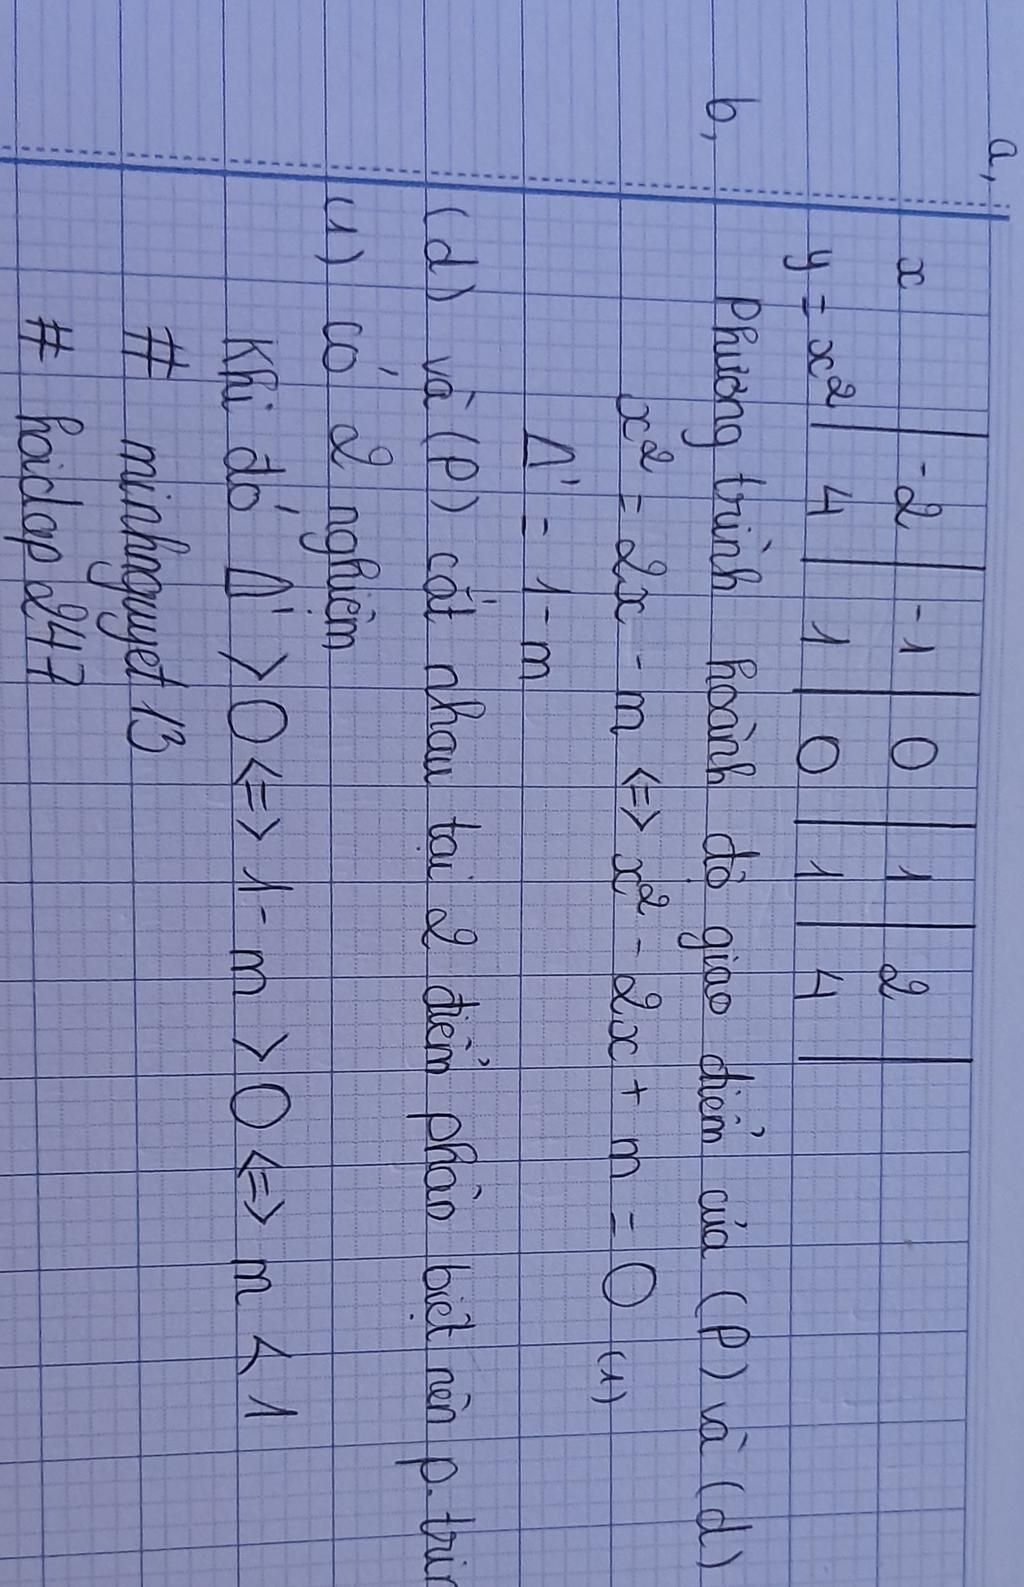 a,
x | -2 | -1 | 0 | 1 | 2 |
y = x² | 4 | 1 | 0 | 1 | 4 |
b, Phương trình hoành độ giao điểm của (P) và (d)
x² = 2x - m <=> x² - 2x + m = 0 (1)
Δ' = 1 - m
(d) và (P) cắt nhau tại 2 điểm phân biệt nên p. trìn
(1) có 2 nghiệm
Khi đó Δ' > 0 <=> 1 - m > 0 <=> m < 1
# minhnguyet 13
# hoidap 247